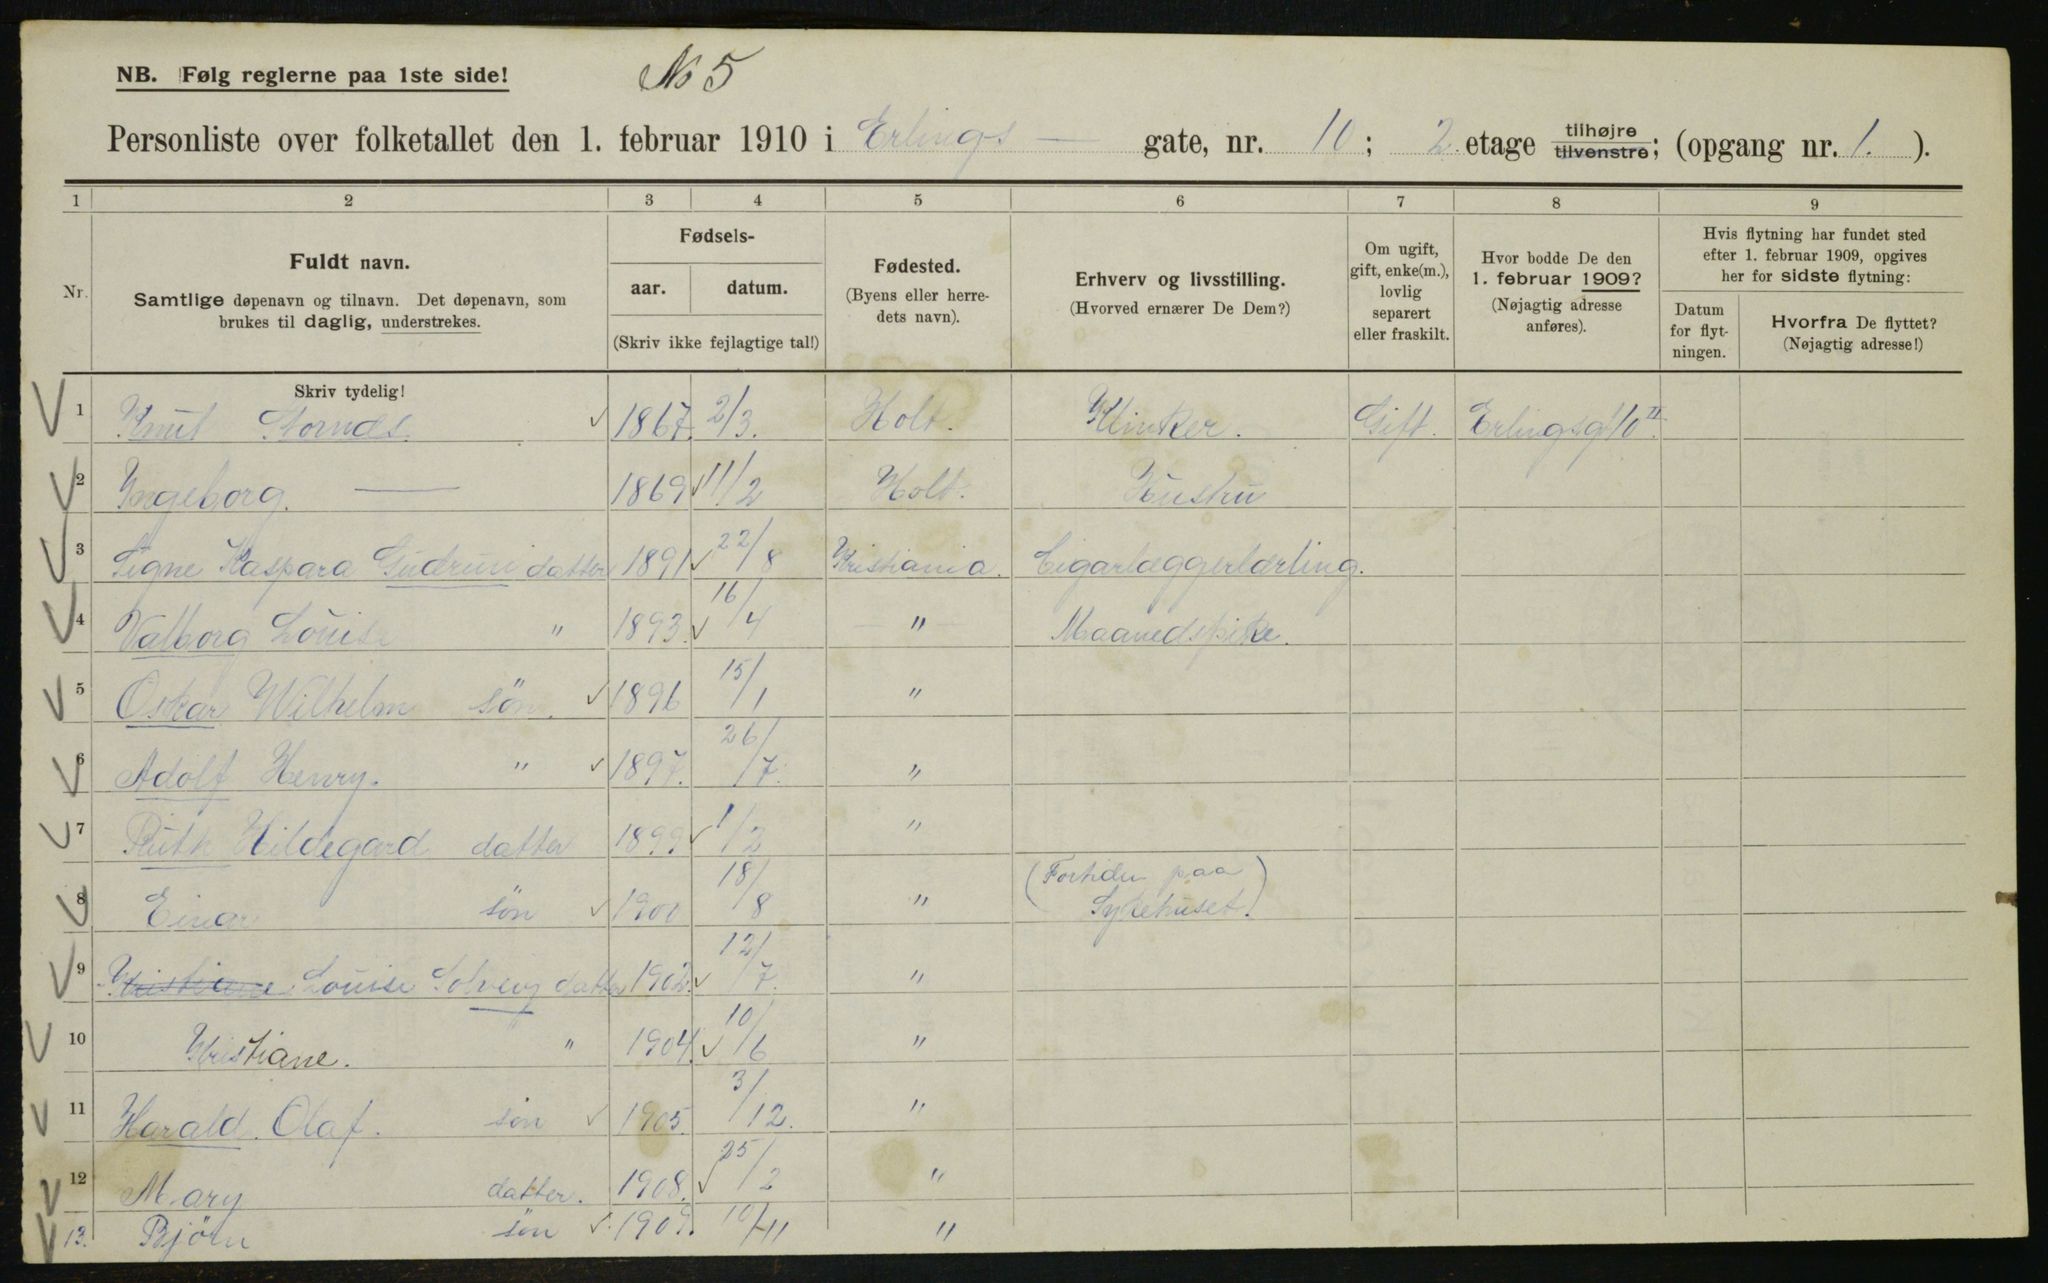 NB. Følg reglerne paa 1ste side!
No 5
Personliste over folketallet den 1. februar 1910 i Erlings — gate, nr. 10; 2 etage tilhøjre tilvenstre; (opgang nr. 1. ).
1 2 3 4 5 6 7 8 9
Nr.
Fuldt navn.
Samtlige døpenavn og tilnavn. Det døpenavn, som
brukes til daglig, understrekes.
Skriv tydelig!
Fødsels-
aar. datum.
(Skriv ikke fejlagtige tal!)
Fødested.
(Byens eller herre-
dets navn).
Erhverv og livsstilling.
(Hvorved ernærer De Dem?)
Om ugift,
gift, enke(m.),
lovlig
separert
eller fraskilt.
Hvor bodde De den
1. februar 1909?
(Nøjagtig adresse
anføres).
Hvis flytning har fundet sted
efter 1. februar 1909, opgives
her for sidste flytning:
Datum
for flyt-
ningen.
Hvorfra De flyttet?
(Nøjagtig adresse!)
1 Knut 1867. 2/3. Holt. Klinker. Gift. Erlingsg. 10 II.
2 Ingeborg. — 1869 11/2 Holt. Hustru
3 Signe Kaspara Gudrun datter 1891 22/8 Kristiania. Cigarlæggerlærling.
4 Valborg Louise " 1893. 16/4 — " — Maanedspike.
5 Oskar Wilhelm søn. 1896 15/1 "
6 Adolf Henry. " 1897. 26/7. "
7 Ruth Hildegard datter 1899 1/2 "
8 Einar søn 1900 18/8 " (Fortiden paa
Sykehuset.)
9 Kristiane Louise Solveig datter 1902. 12/7. "
10 Kristiane. " 1904. 10/6 "
11 Harald Olaf. søn 1905. 3/12. "
12 Mary datter. 1908. 25/2 "
13. Bjørn søn 1909. 10/11 "